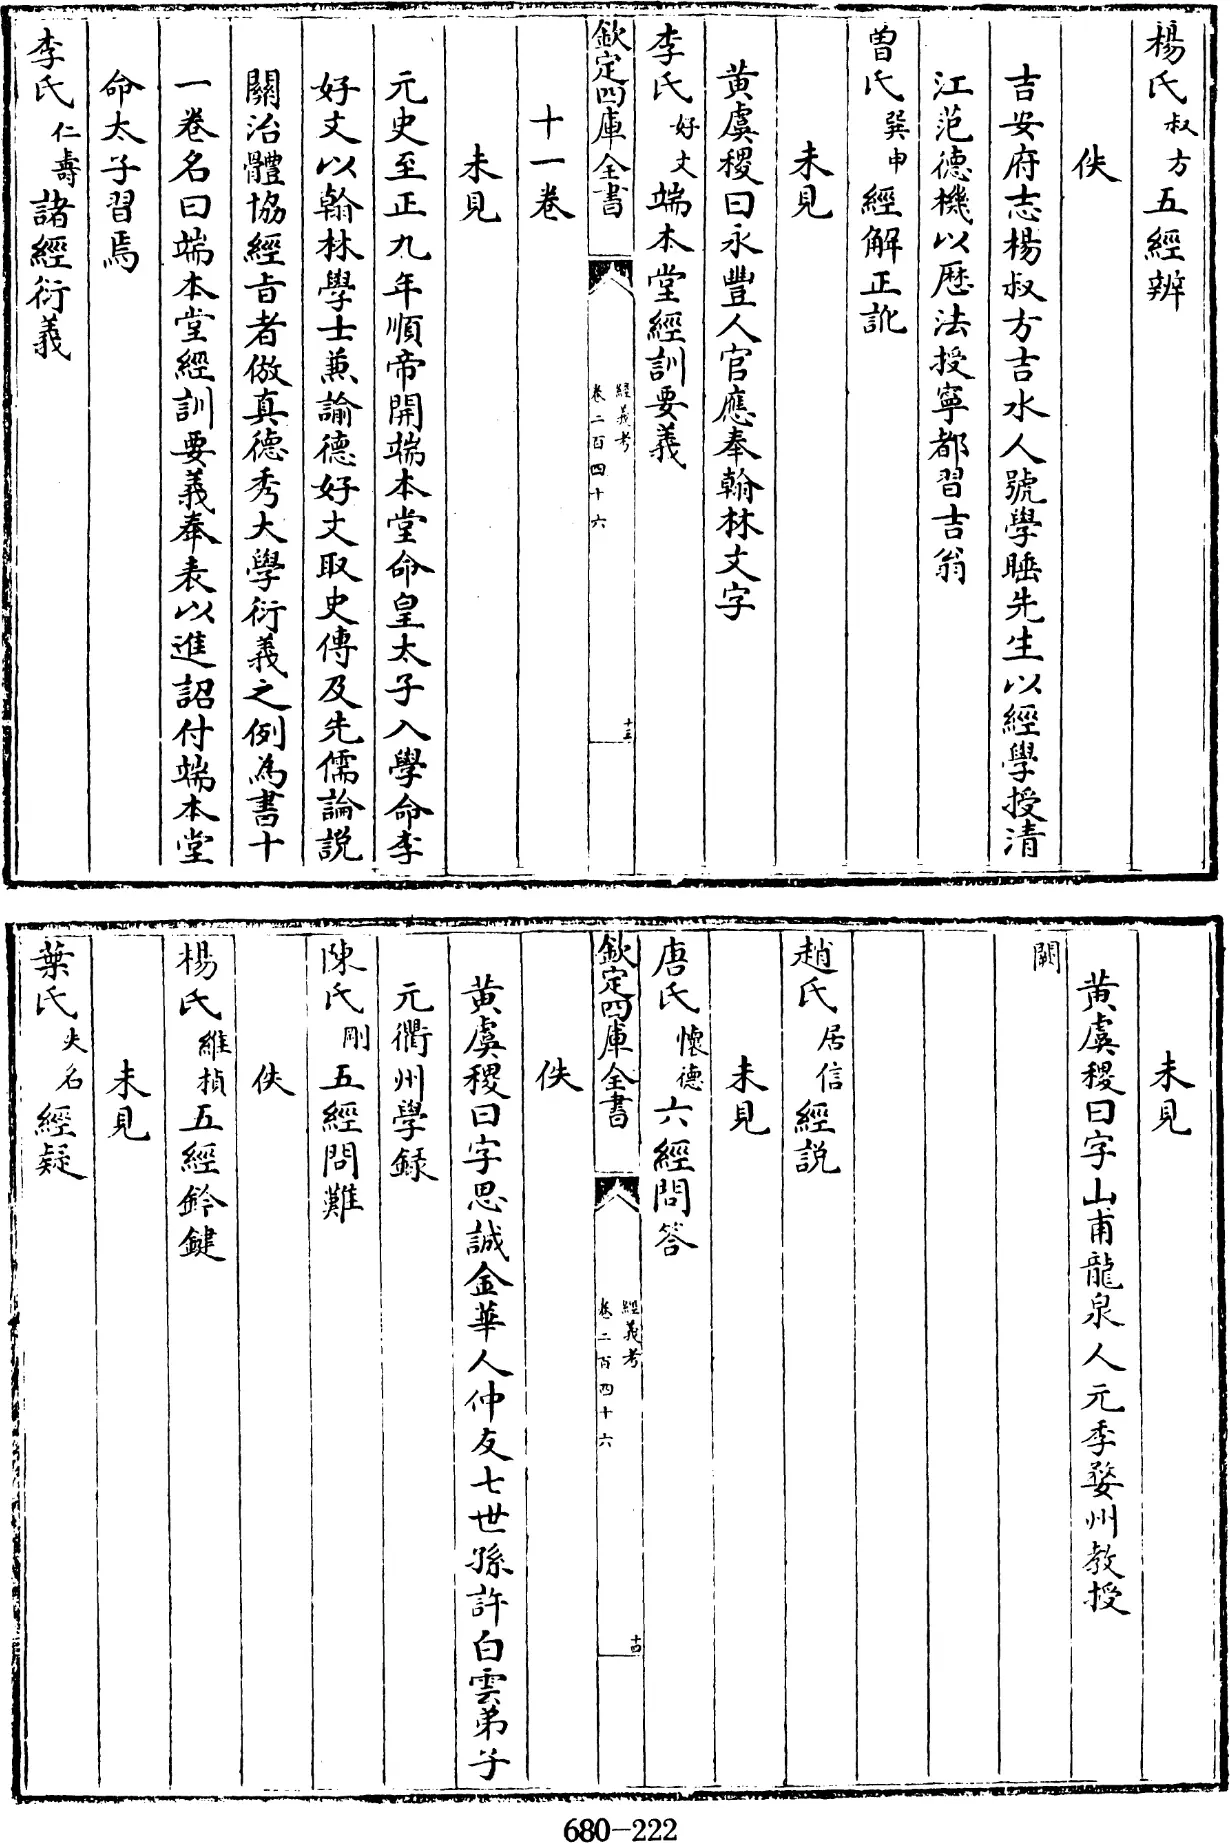 楊氏叔方五經辨
佚
吉安府志楊叔方吉水人號學睡先生以經學授清
江范德機以厯法授寧都習吉翁
曽氏巽申經解正訛
未見
黄虞稷曰永豐人官應奉翰林文字
李氏好文端本堂經訓要義
欽定四庫全書
經義考
卷二百四十六
十三
十一卷
未見
元史至正九年順帝開端本堂命皇太子入學命李
好文以翰林學士兼諭德好文取史傳及先儒論説
關治體協經旨者倣真德秀大學衍義之例為書十
一卷名曰端本堂經訓要義奉表以進詔付端本堂
命太子習焉
李氏仁壽諸經衍義
未見
黄虞稷曰字山甫龍泉人元季婺州教授
闕
趙氏居信經説
未見
唐氏懷德六經問答
欽定四庫全書
經義考
卷二百四十六
十四
佚
黄虞稷曰字思誠金華人仲友七世孫許白雲弟子
元衢州學録
陳氏剛五經問難
佚
楊氏維楨五經鈐鍵
未見
葉氏失名經疑
680-222